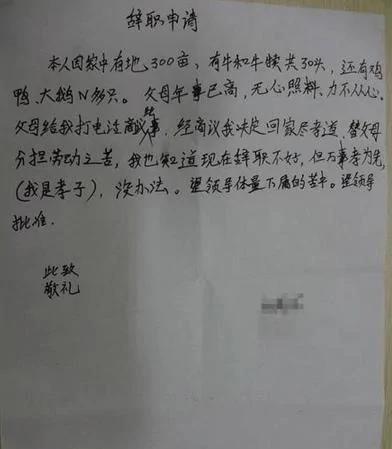 辞职申请
本人因家中有地300亩，有牛和牛犊共30头，还有鸡
鸭、大鹅N多只。父母年事已高，无心照料、力不从心。
父母给我打电话商议结事，经商议我决定回家尽孝道，替父母
分担劳动之苦，我也知道现在辞职不好，但万事孝为先，
(我是孝子)，没办法。望领导体量下属的苦中。望领导
批准.
此致
敬礼